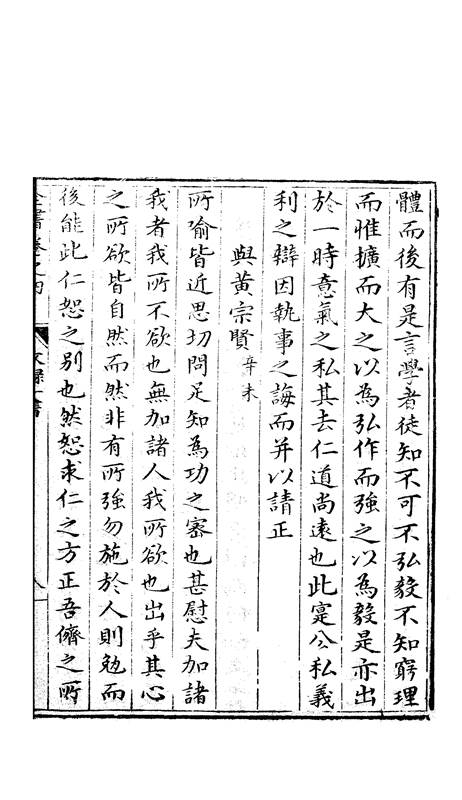 體而後有是言學者徒知不可不弘毅不知窮理
而惟擴而大之以為弘作而強之以為毅是亦出
於一時意氣之私其去仁道尚遠也此寔公私義
利之辯因執事之誨而并以請正
與黃宗賢 辛未
所喻皆近思切問足知為功之審也甚慰夫加諸
我者我所不欲也無加諸人我所欲也出乎其心
之所欲皆自然而然非有所強勿施於人則勉而
後能此仁恕之別也然恕求仁之方正吾儕之所
全書卷之四 文錄一 書 八